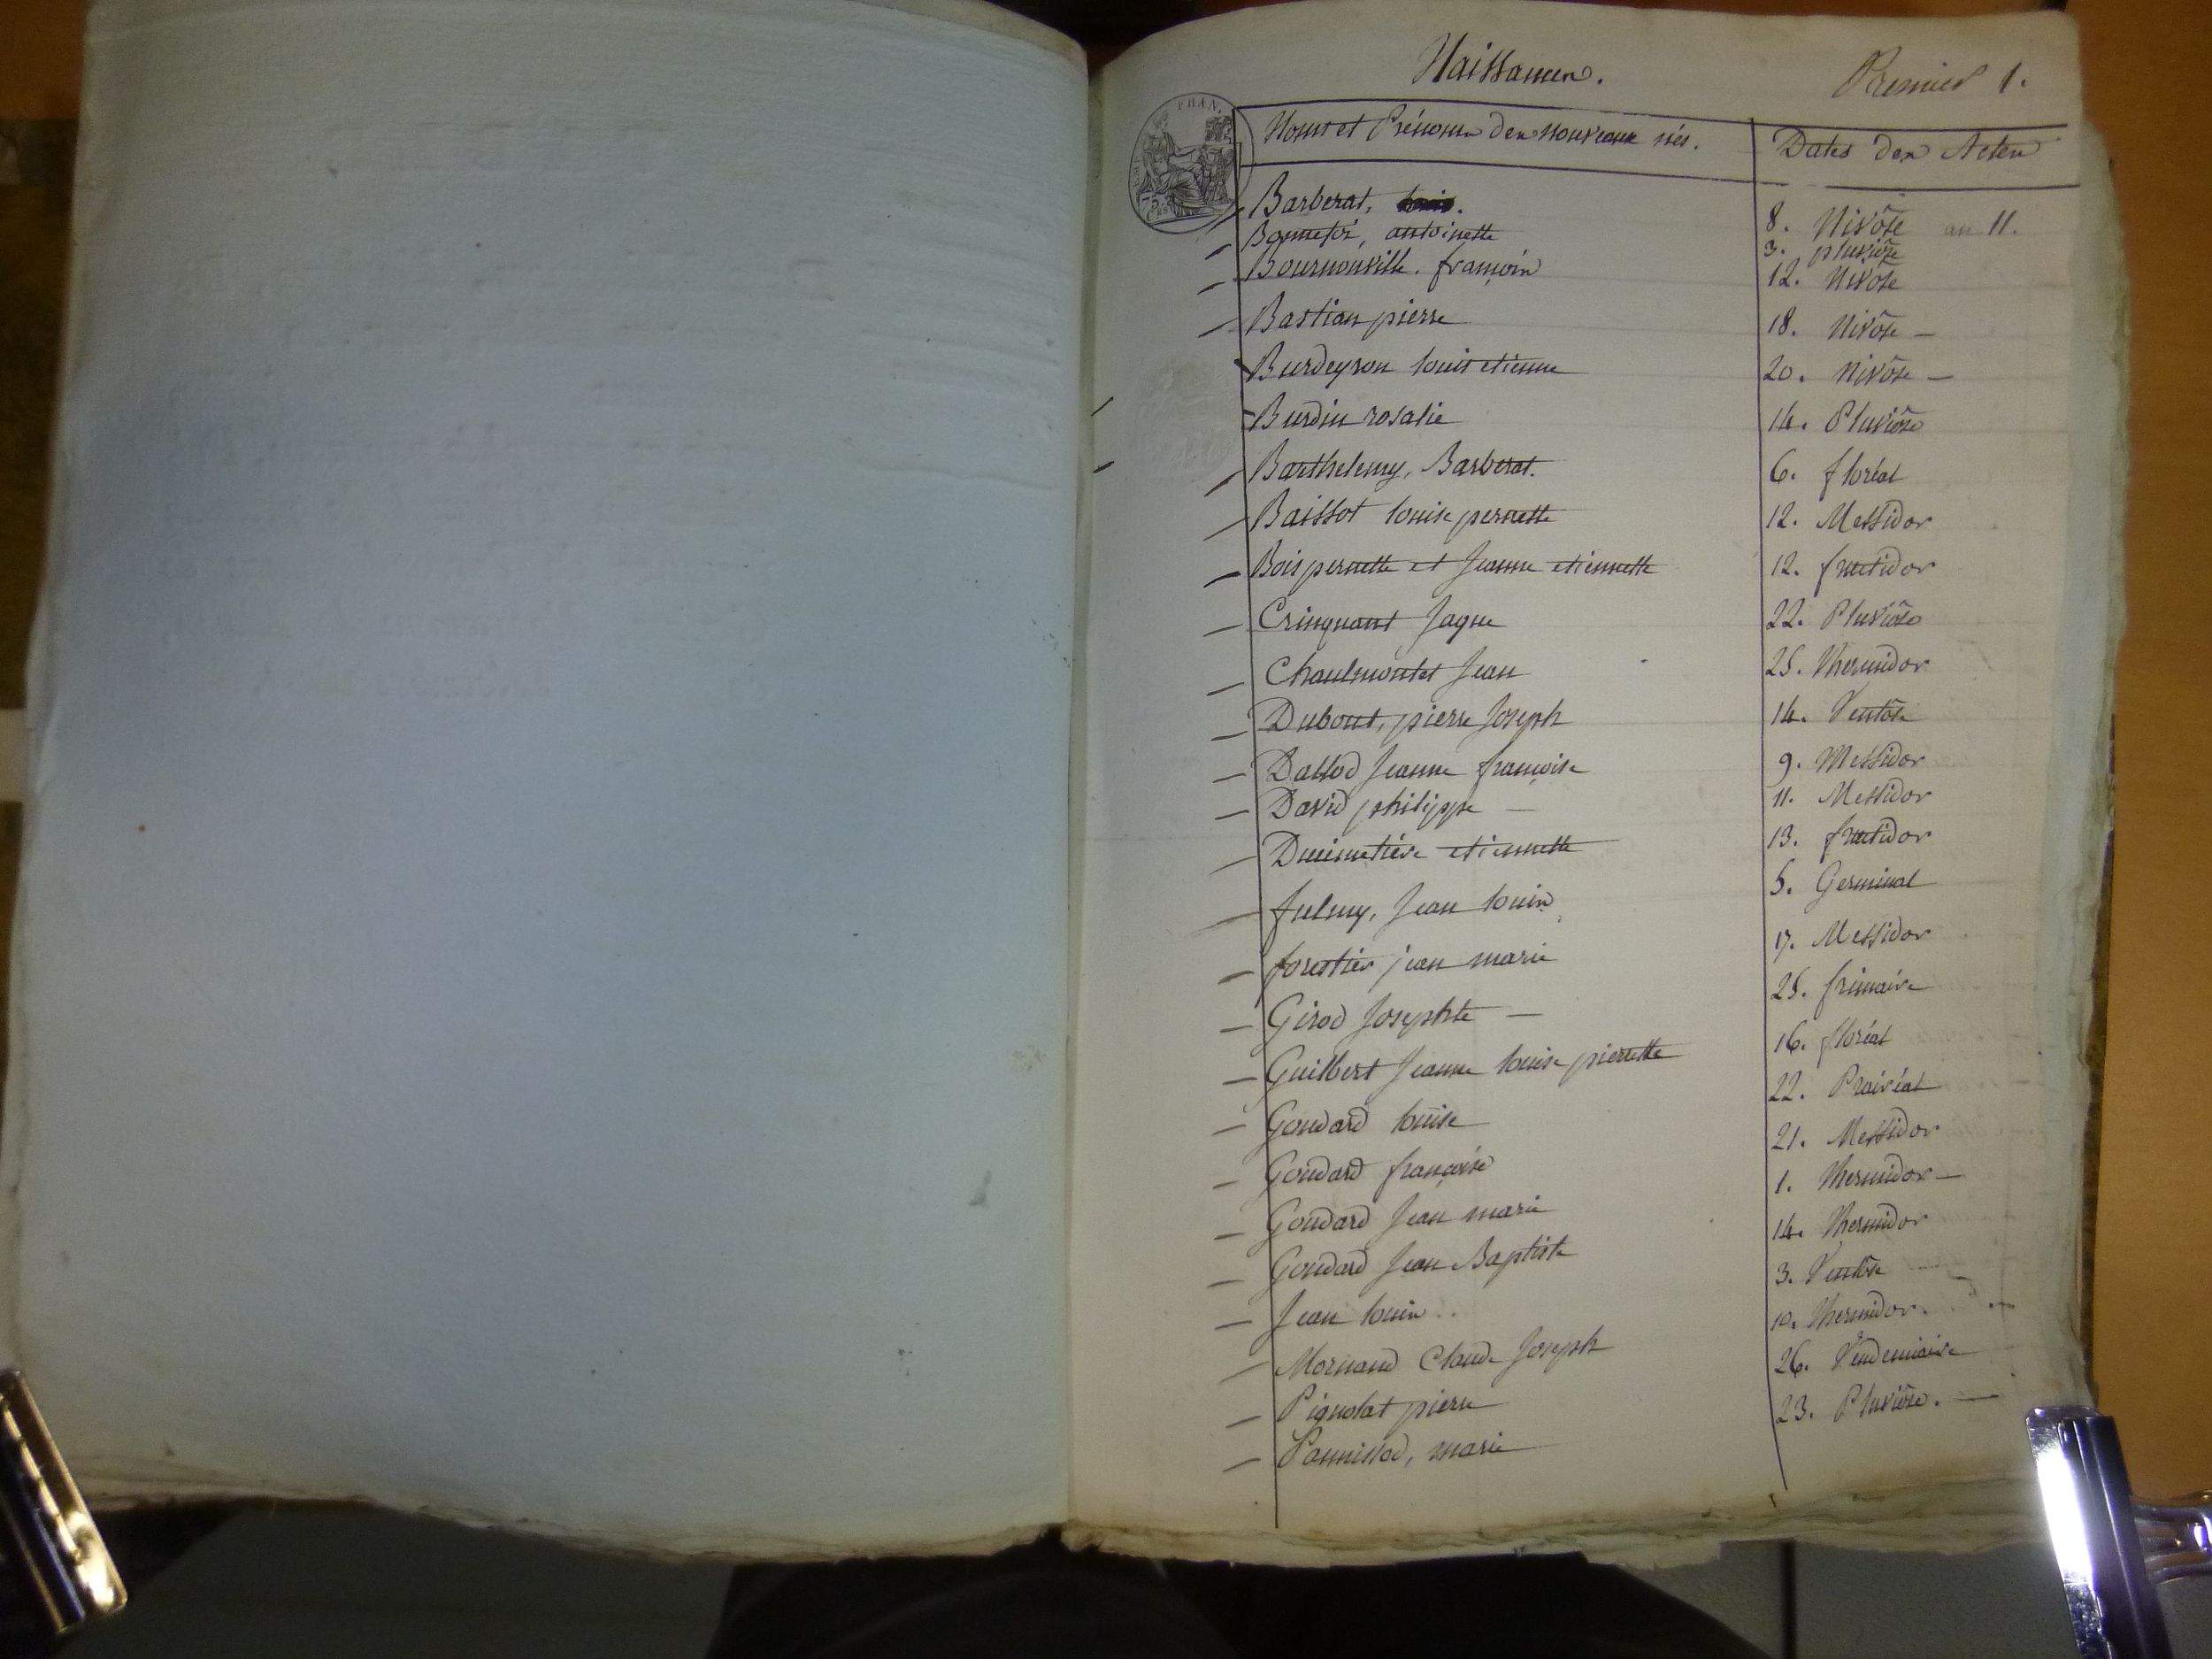 Naissances. Premier 1.
Noms et Prénoms des nouveaux nés. Dates des Actes
Barberat, 8. Nivôse an 11.
Bonnefoi, antoinette 3. pluviôse
Bournonville. françois 12. Nivôse
Bastian pierre 18. Nivôse —
Burdeyron louis etienne 20. Nivôse —
Burdin rosalie 14. Pluviôse
Barthelemy, Barberat. 6. floréal
Baissot louise pernette 12. Messidor
Bois pernette et Jeanne etiennette 12. fructidor
Crinquant Jaque 22. Pluviôse
Chaulmontet Jean 25. Thermidor
Dubout, pierre Joseph 14. Ventôse
Dallod Jeanne françoise 9. Messidor
David philippe — 11. Messidor
Ducimetière etiennette 13. fructidor
Jean louis 5. Germinal
forestier jean marie 17. Messidor
Girod Josephte — 25. frimaire
Guilbert Jeanne louise pierrette 16. floréal
Goudard louise 22. Prairéal
Goudard françoise 21. Messidor
Goudard Jean marie 1. Thermidor —
Goudard Jean Baptiste 14. Thermidor
Jean louis 3. Ventôse
Mornand Claude Joseph 10. Thermidor.
Pignolat pierre 26. Vendemiaire
Pannissod, marie 23. Pluviôse. —